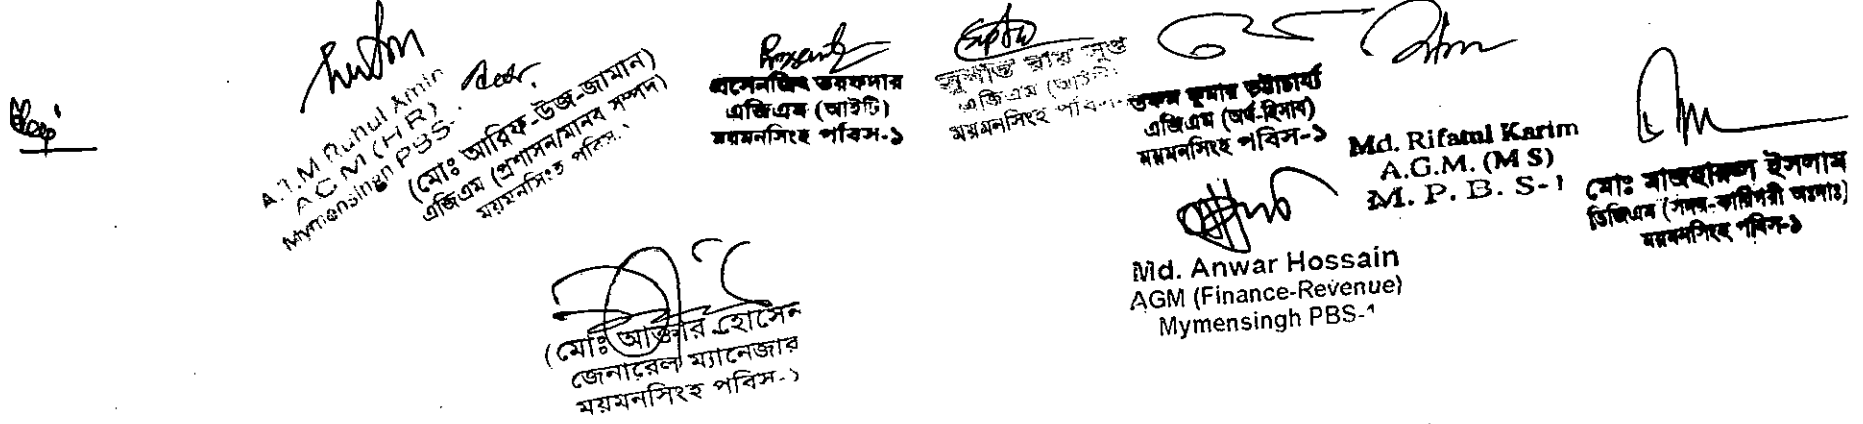 A.T.M Ruhul Amin
AGM (HR)
Mymensingh PBS-
(মোঃ আরিফ-উজ-জামান)
এজিএম (প্রশাসন/মানব সম্পদ)
ময়মনসিংহ পবিস-১
প্রসেনজিৎ তরফদার
এজিএম (আইটি)
ময়মনসিংহ পবিস-১
সুশান্ত রায় সুপ্ত
এজিএম (আইটি)
ময়মনসিংহ পবিস-
কুমার ভট্টাচার্য্য
এজিএম (অর্থ-হিসাব)
ময়মনসিংহ পবিস-১
Md. Rifatul Karim
A.G.M. (M S)
M. P. B. S-1
মোঃ মাজহারুল ইসলাম
ডিজিএম (সদর-কারিগরী অঃদাঃ)
ময়মনসিংহ পবিস-১
Md. Anwar Hossain
AGM (Finance-Revenue)
Mymensingh PBS-1
(মোঃ হোসেন
জেনারেল ম্যানেজার
ময়মনসিংহ পবিস-১